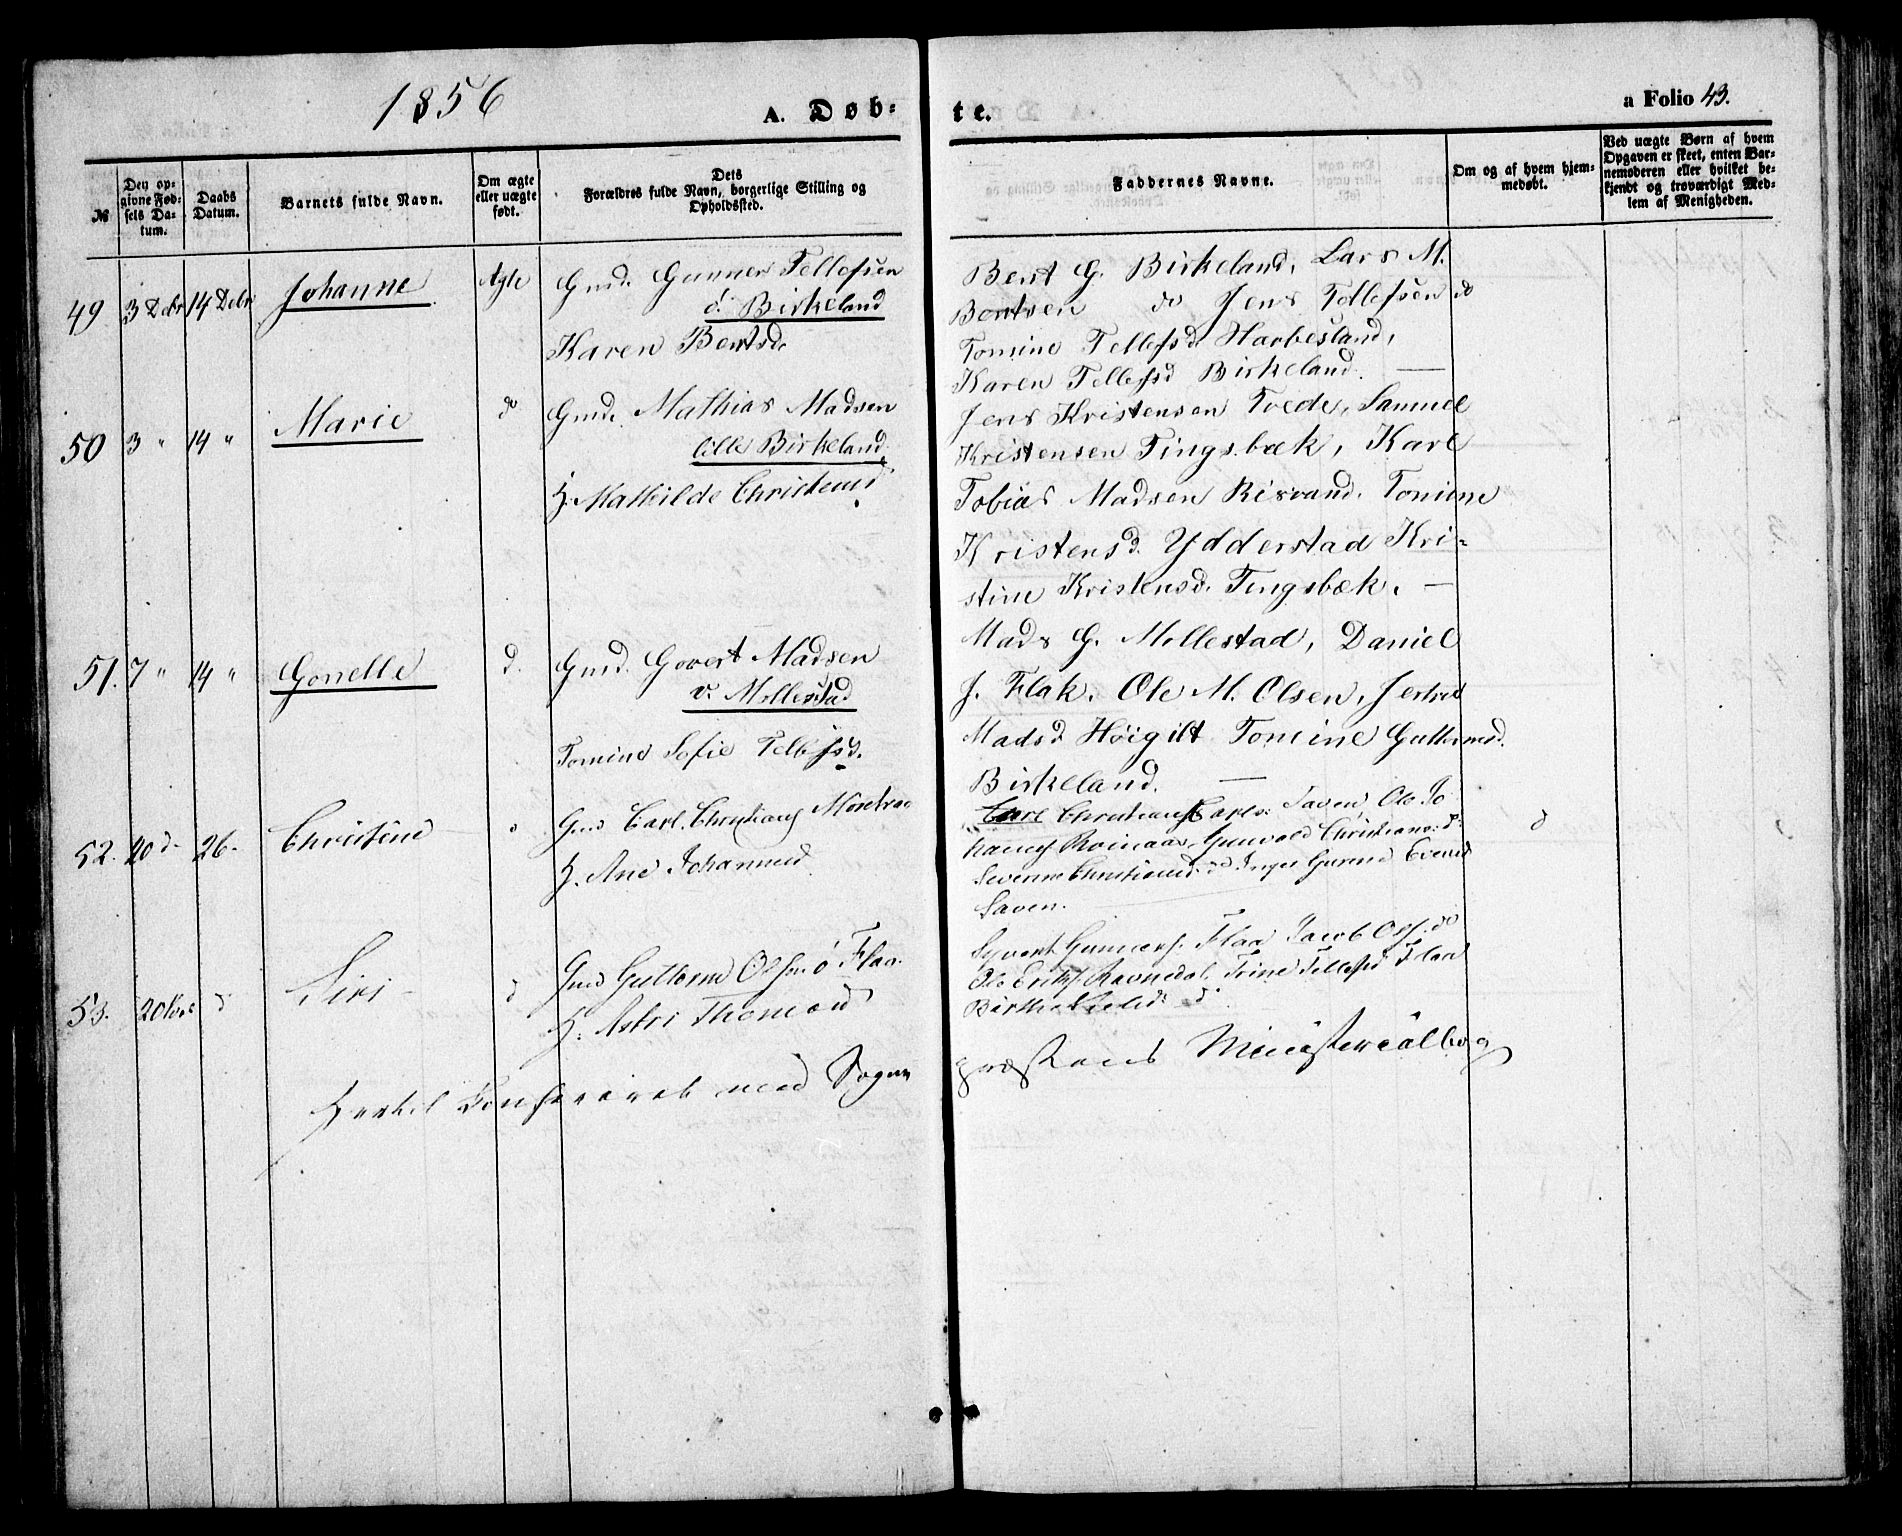 1856
A. Døb-
te.
a Folio 43.
№
Den op-
givne Fød-
sels Da-
tum.
Daabs
Datum.
Barnets fulde Navn.
Om ægte
eller uægte
født.
Dets
Forældres fulde Navn, borgerlige Stilling og
Opholdssted.
Faddernes Navne.
Om og af hvem hjem-
medøbt.
Ved uægte Børn af hvem
Opgaven er skeet, enten Bar-
nemoderen eller hvilket be-
kjendt og troværdigt Med-
lem af Menigheden.
49 3 Debr 14 Debr Johanne Ægte Gmd. Gunner Tellefsen
ö. Birkeland
Karen Bentsd.
Bent G. Birkeland, Lars M.
Bentsen do Jens Tellefsen do
Tomine Tellefsd. Harbesland,
Karen Tellefsd Birkeland. —
50 3 " 14 " Marie do Gmd. Mathias Madsen
lille Birkeland
H. Mathilde Christensd.
Jens Kristensen Tvede, Samuel
Kristensen Tingsbæk, Karl
Tobias Madsen Risvand. Tomine
Kristensd. Ydderstad Kri-
stine Kristensd. Tingsbæk. —
51. 7 " 14 " Gonelle d. Gmd. Govert Madsen
v. Mollestad
Tomine Sofie Tellefsd.
Mads G. Mollestad, Daniel
J. Flak. Ole M. Olsen, Jertrud
Madsd Høigilt Tomine Guttormsd.
Birkeland. —
52. 20 d. 26. Christine Gmd Carl Christians
H. Ane Johannesd
Carl Christians Carls. Saven, Ole Jo
hannes Roinaas, Gunvald Christians. d:
Severine Christiansd. d Inger Gurine Evensd
Saven.
d
53. 20 d Siri d Gmd Guttorm Olsen ö Flaa.
H. Astri Thomasd
Syvert Gunners. Flaa Jacob Ols. do
Ole Eriks. Ravnedal, Trine Tellefsd Flaa
Birthe d
Confereret med Sogne
præstens Ministerialbog